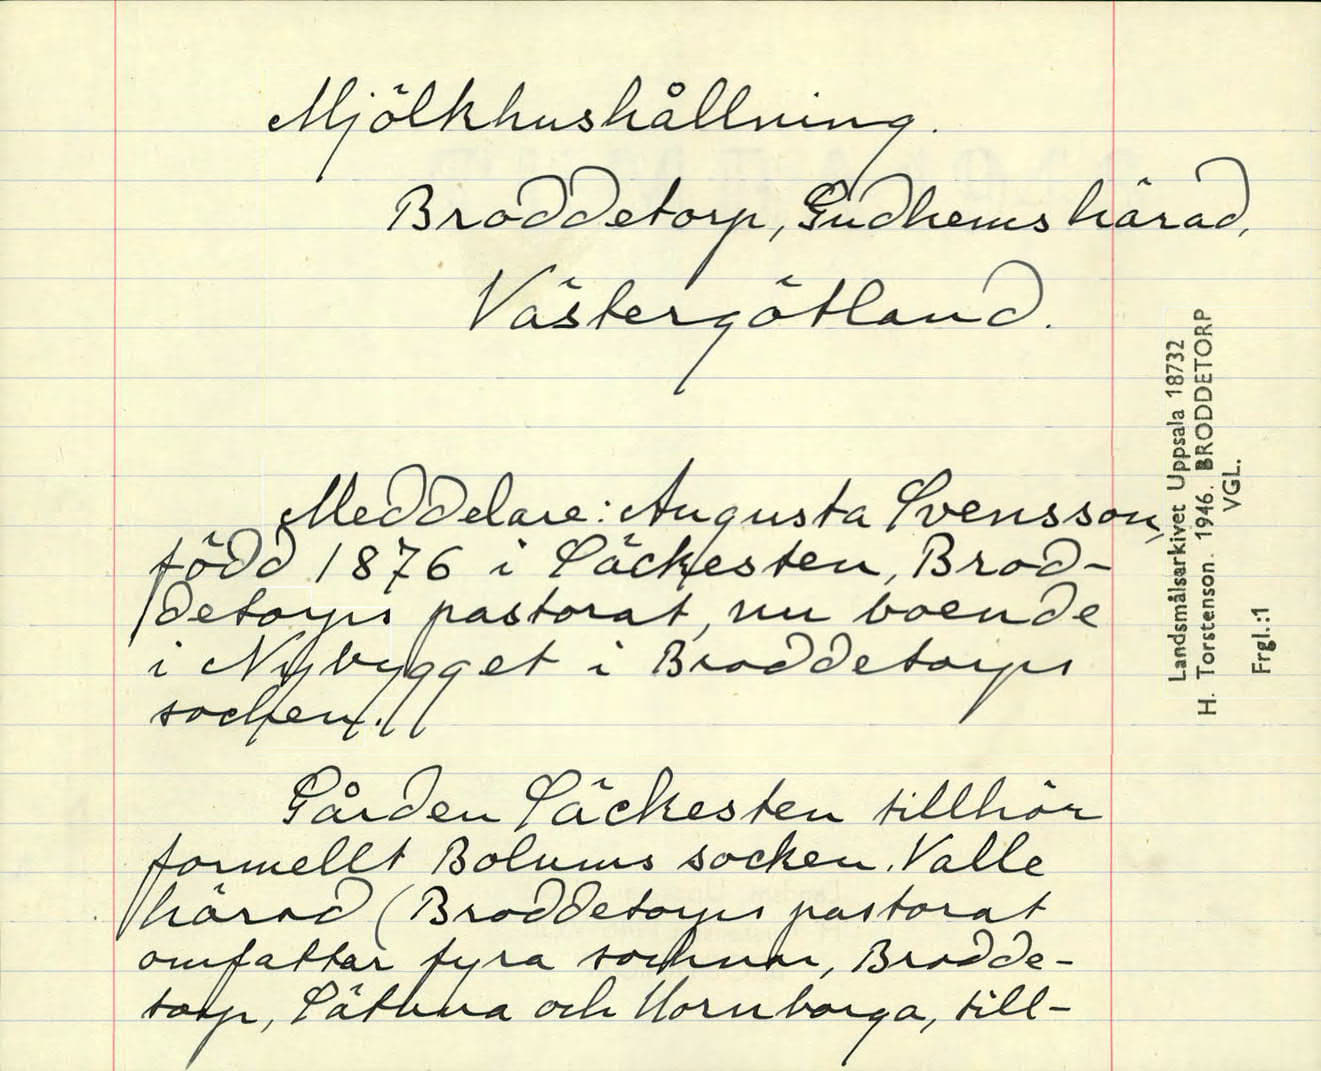 Mjölkhushållning.
Broddetorp, Gudhems härad,
Västergötland.
Meddelare: Augusta Svensson,
född 1876 i Säckesten, Brod-
detorps pastorat, nu boende
i Nybygget i Broddetorps
socken.
Gården Säckesten tillhör
formellt Bolums socken. Valle
härad (Broddetorps pastorat
omfattar fyra socknar, Brodde-
torp, Sätuna och Hornborga, till-
Landsmålsarkivet Uppsala 18732
H. Torstenson. 1946. BRODDETORP
VGL.
Frgl.:1